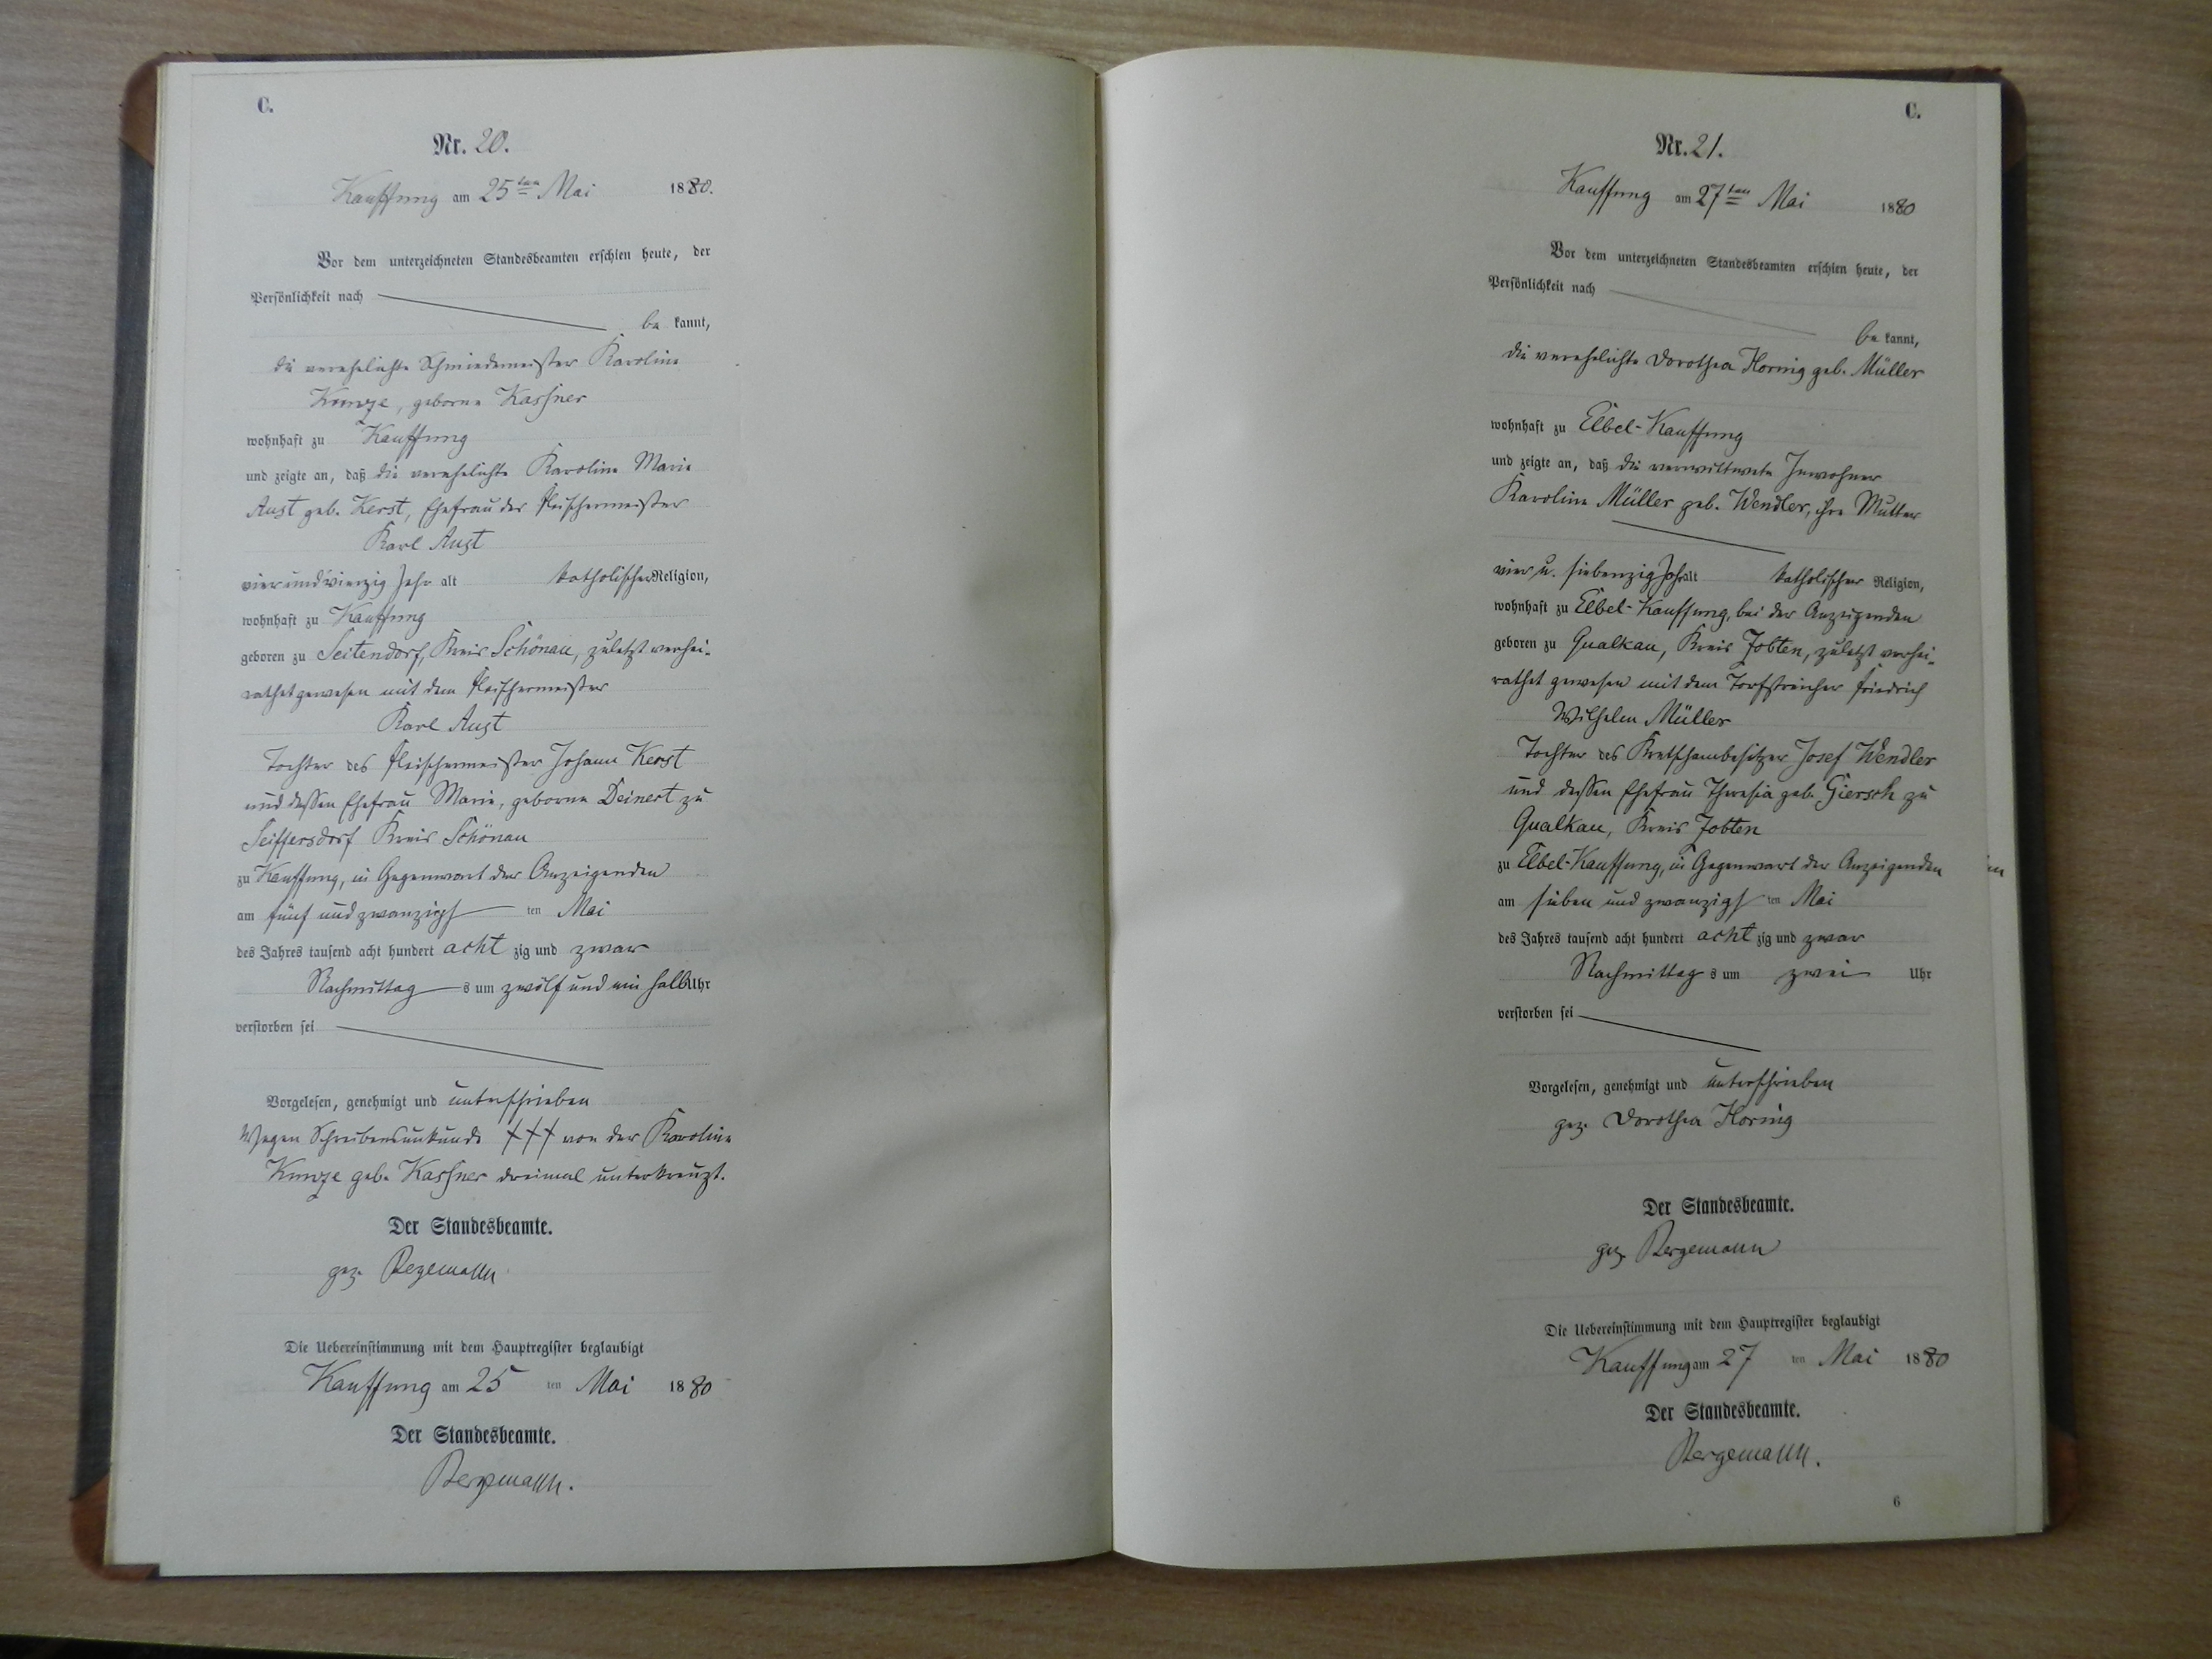 C.
Nr. 20.
Kauffung am 25ten Mai 1880.
Vor dem unterzeichneten Standesbeamten erschien heute, der
Persönlichkeit nach
be kannt,
die verehelichte Schmiedemeister Karoline
Kunze, geborne Kassner
wohnhaft zu Kauffung
und zeigte an, daß die verehelichte Karoline Marie
Aust geb. Kerst, Ehefrau des Fleischermeister
Karl Aust
vierundvierzig Jahr alt katholischer Religion,
wohnhaft zu Kauffung
geboren zu Seitendorf, Kreis Schönau, zuletzt verhei-
rathet gewesen mit dem Fleischermeister
Karl Aust
Tochter des Fleischermeister Johann Kerst
und dessen Ehefrau Marie, geborne Deinert zu
Seiffersdorf Kreis Schönau
zu Kauffung, in Gegenwart der Anzeigenden
am fünf und zwanzigst ten Mai
des Jahres tausend acht hundert acht zig und zwar
Nachmittag s um zwölf und ein halb Uhr
verstorben sei
Vorgelesen, genehmigt und unterschrieben
Wegen Schreibensunkunde +++ von der Karoline
Kunze geb. Kassner dreimal unterkreuzt.
Der Standesbeamte.
gez. Bergemann
Die Uebereinstimmung mit dem Hauptregister beglaubigt
Kauffung am 25 ten Mai 1880
Der Standesbeamte.
Bergemann.
C.
Nr. 21.
Kauffung am 27ten Mai 1880
Vor dem unterzeichneten Standesbeamten erschien heute, der
Persönlichkeit nach
be kannt,
die verehelichte Dorothea Hornig geb. Müller
wohnhaft zu Elbel-Kauffung
und zeigte an, daß die verwittwete Inwohner
Karoline Müller geb. Wendler, ihre Mutter
vier u. siebenzig Jahr alt katholischer Religion,
wohnhaft zu Elbel-Kauffung, bei der Anzeigenden
geboren zu Qualkau, Kreis Zobten, zuletzt verhei-
rathet gewesen mit dem Torfstreicher Friedrich
Wilhelm Müller
Tochter des Kretschambesitzer Josef Wendler
und dessen Ehefrau Theresia geb. Giersch zu
Qualkau, Kreis Zobten
zu Elbel-Kauffung, in Gegenwart der Anzeigenden
am sieben und zwanzigst ten Mai
des Jahres tausend acht hundert acht zig und zwar
Nachmittag s um zwei Uhr
verstorben sei
Vorgelesen, genehmigt und unterschrieben
gez. Dorothea Hornig
Der Standesbeamte.
gez. Bergemann
Die Uebereinstimmung mit dem Hauptregister beglaubigt
Kauffung am 27 ten Mai 1880
Der Standesbeamte.
Bergemann.
6